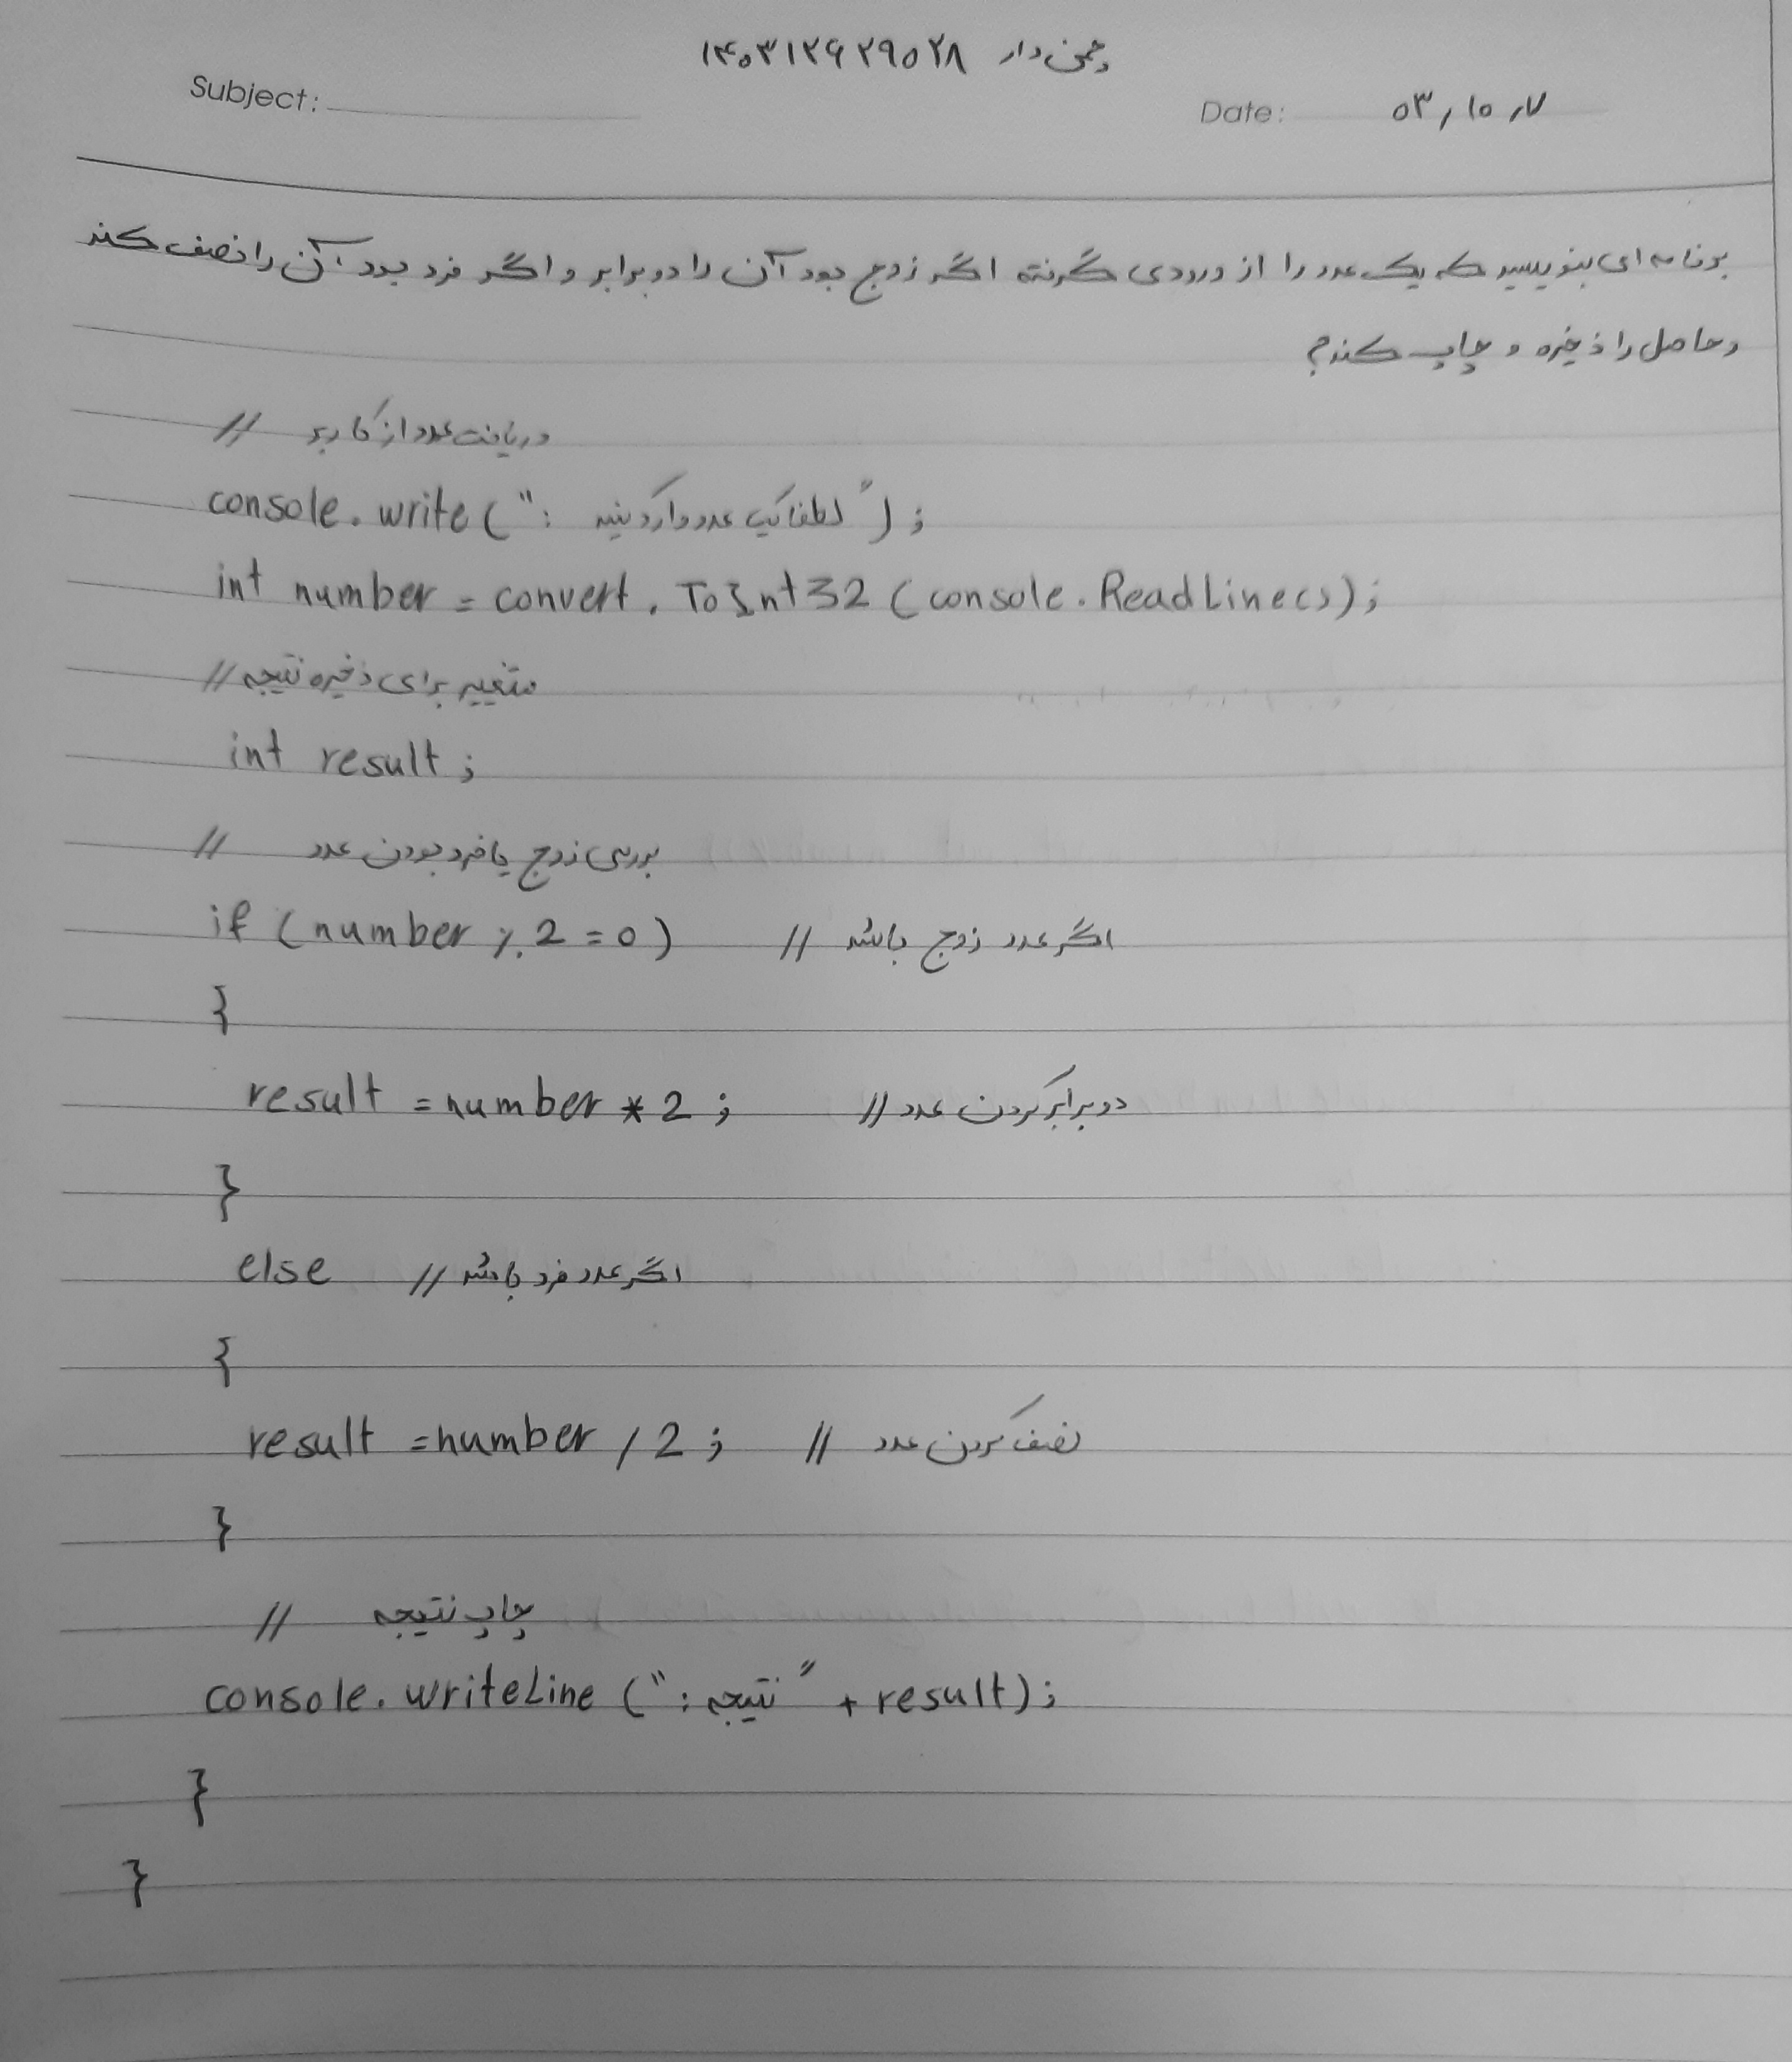 دار ۱۴۰۳۱۲۶۲۹۰۲۸
Subject:
Date: ۰۳,۱۰,۷
برنامه ای بنویسید که یک عدد را از ورودی گرفته اگر زوج بود آن را دو برابر و اگر فرد بود، آن را نصف کند
و حاصل را ذخیره و چاپ کند؟
// دریافت عدد از کاربر
console.write(": لطفا یک عدد وارد کنید");
int number = convert.ToInt32(console.ReadLine());
// متغییر برای ذخیره نتیجه
int result;
// بررسی زوج یا فرد بودن عدد
if (number % 2 = 0) // اگر عدد زوج باشد
}
result = number * 2; // دو برابر کردن عدد
}
else // اگر عدد فرد باشد
{
result = number / 2; // نصف کردن عدد
}
// چاپ نتیجه
console.writeLine(": نتیجه" + result);
}
}